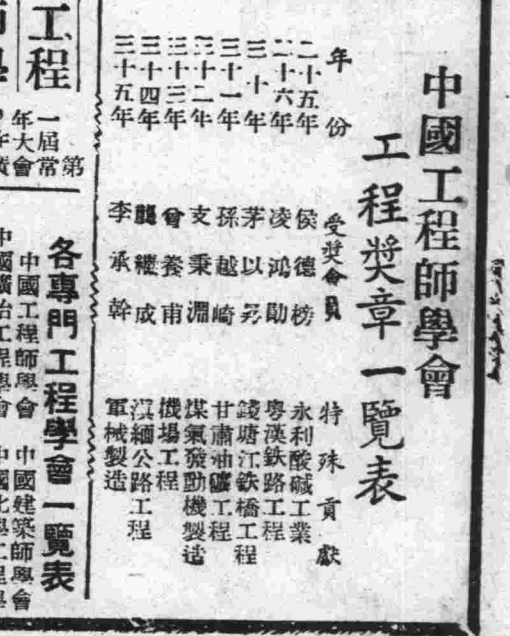 中國工程師學會
工程獎章一覽表
年份 受獎會員 特殊貢獻
二十五年 侯德榜 永利酸碱工業
二十六年 凌鴻勛 粵漢鉄路工程
三十年 茅以昇 錢塘江鉄橋工程
三十一年 孫越崎 甘肅油礦工程
三十二年 支秉淵 煤氣發動機製造
三十三年 曾養甫 機場工程
三十四年 龔繼成 滇緬公路工程
三十五年 李承幹 軍械製造
工程
第
一屆常
年大會
各專門工程學會一覽表
中國工程師學會 中國建築師學會